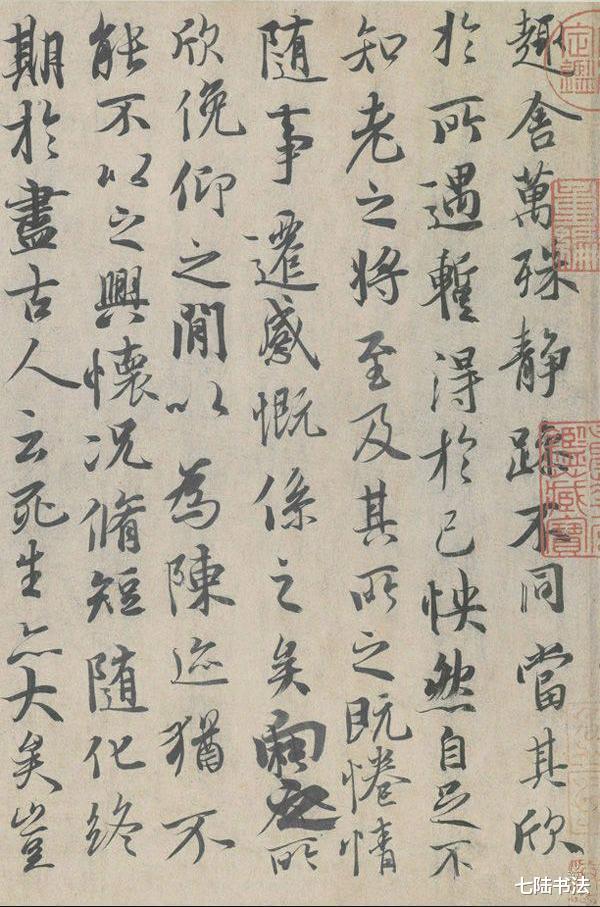 趣舍萬殊静躁不同當其欣
於所遇蹔得於己怏然自足不
知老之將至及其所之既惓情
随事遷感慨係之矣向之所
欣俛仰之閒以為陳迹猶不
能不以之興懷況脩短随化終
期於盡古人云死生亦大矣豈
七陆书法